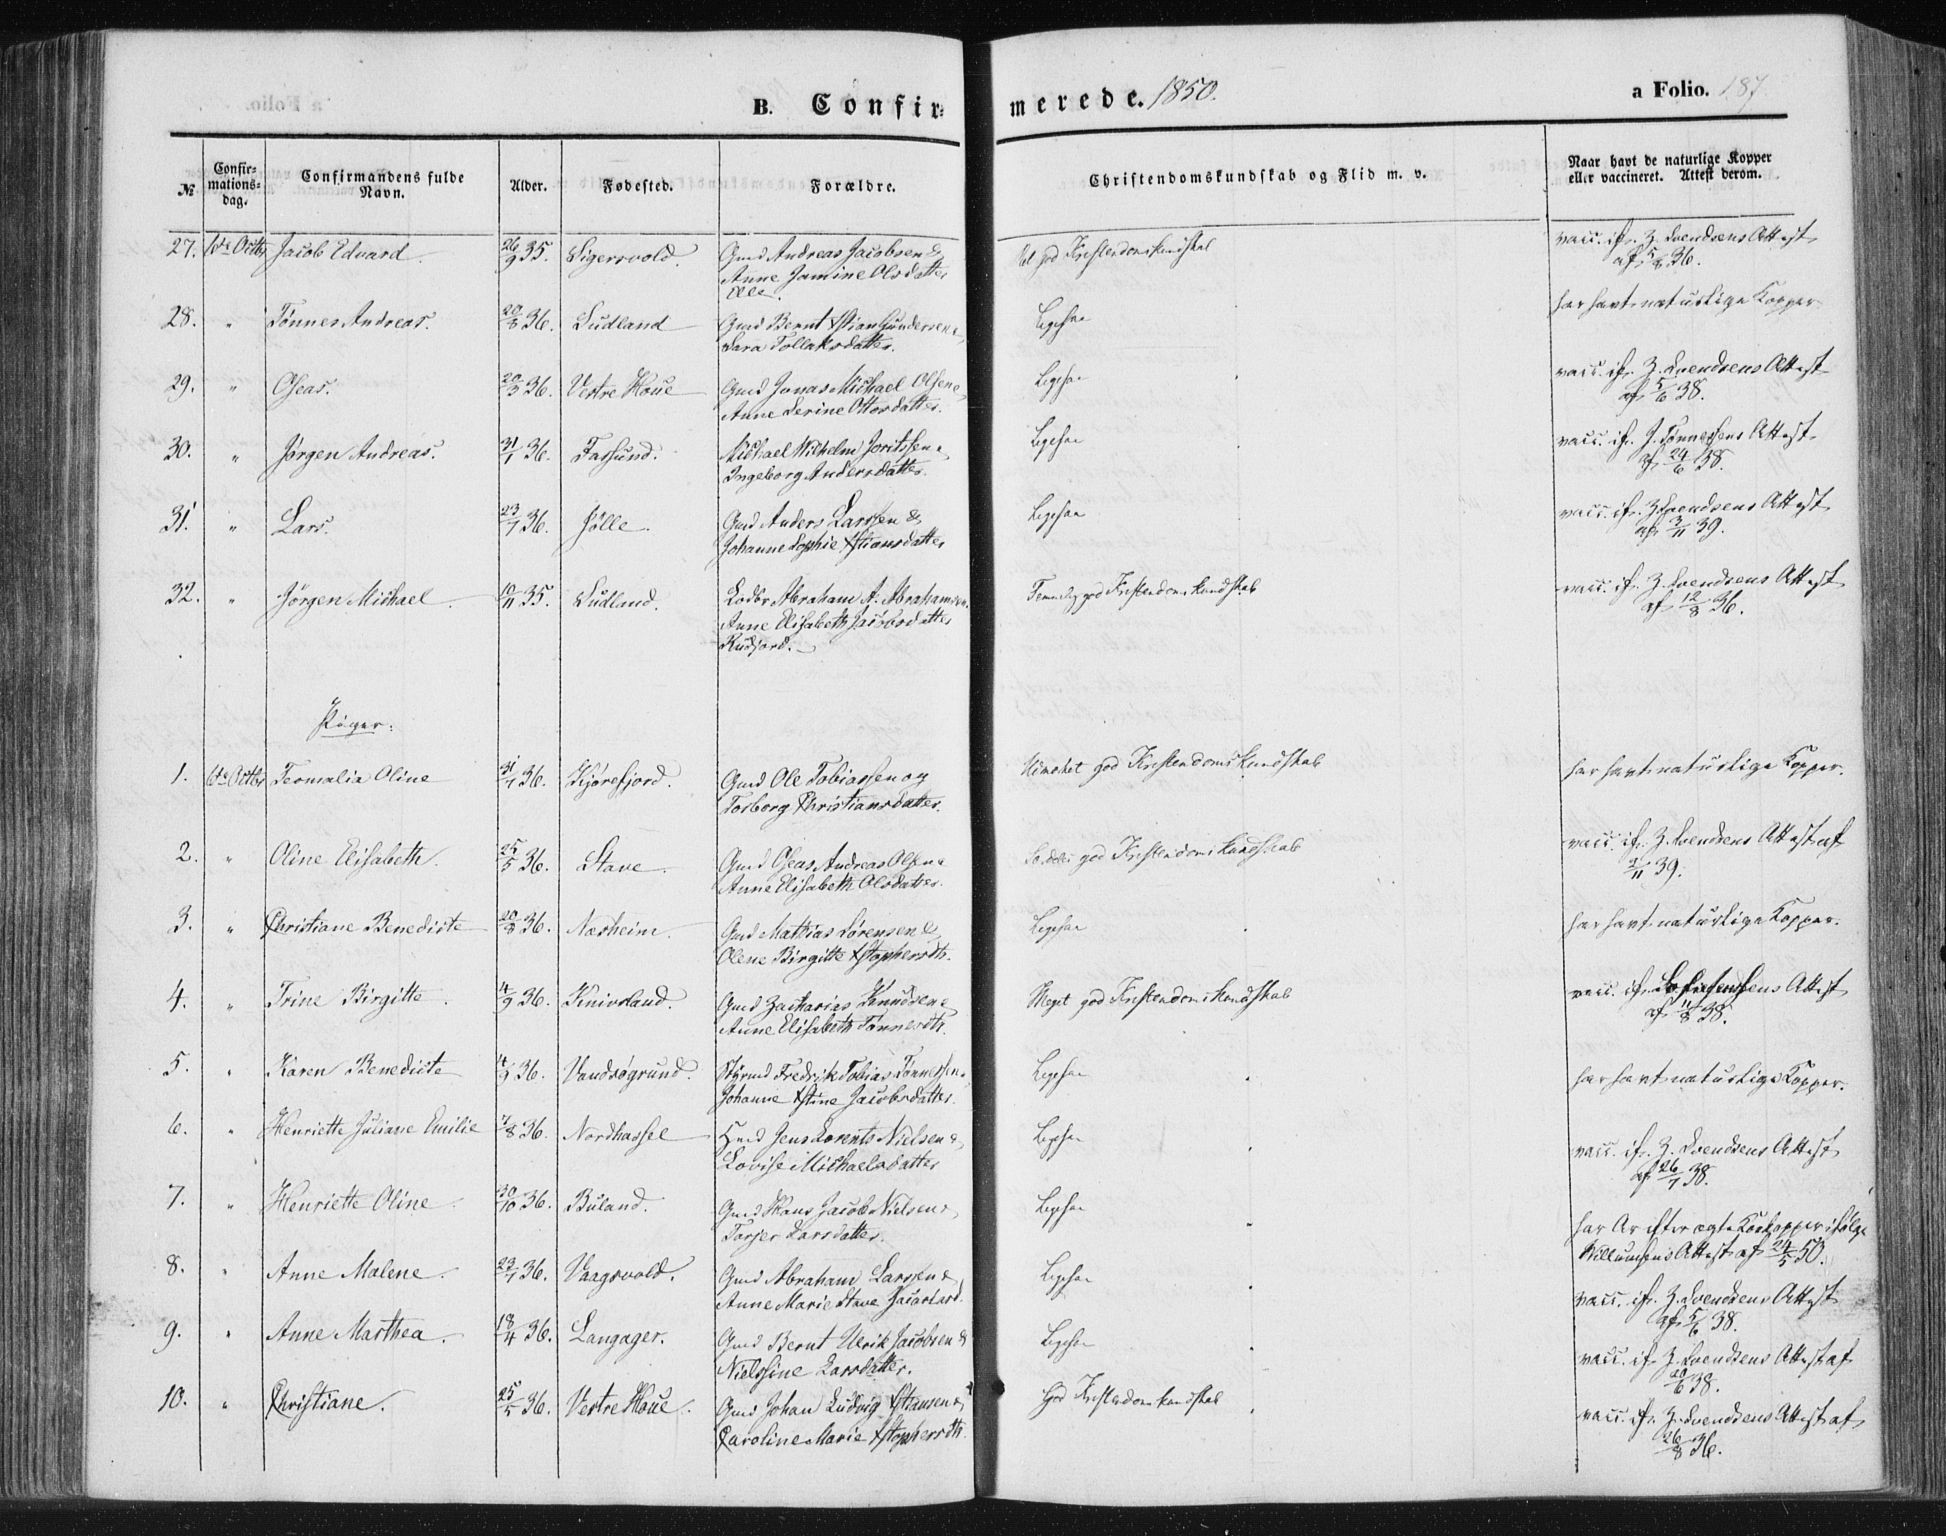 B. Confir-
merede. 1850.
a Folio. 187
№
Confir-
mations-
dag.
Confirmandens fulde
Navn.
Alder.
Fødested.
Forældre.
Christendomskundskab og Flid m. v.
Naar havt de naturlige Kopper
eller vaccineret. Attest derom.
27. Octbr Jacob Edvard. 26/9 35. Sigersvold. Gmd Andreas Jacobsen &
Anne Jamine Olsdatter
god Kristendomskundskab
vacc. if. Z. Svendsens Attest
af 5/8 36.
28. " Tønnes Andreas. 20/8 36. Sudland Gmd Bernt Xstian Gundersen
Sara Tollaksdatter.
Ligesaa
har havt naturlige Kopper
29. " Oseas. 20/3 36. Vestre Houe Gmd Jonas Michael Olsen
Anne Serine Ottosdatter.
Ligesaa
vacc. if. Z. Svendsens Attest
af 5/6 38.
30. " Jørgen Andreas. 31/1 36. Farsund. Michael Wilhelm
Ingeborg Andersdatter.
Ligesaa
vacc. if. J. Tønnesens Attest
af 24/6 38.
31. " Lars. 23/7 36. Jølle. Gmd Anders Larssen &
Johanne Sophie Xstiansdatter
Ligesaa
vacc. if. Z. Svendsens Attest
af 3/11 39.
32. " Jørgen Michael. 10/11 35. Sudland. Lods Abraham A. Abrahamsen
Anne Elisabeth Jacobsdatter
Rudjord.
Temmelig god Kristendomskundskab
vacc. if. Z. Svendsens Attest
af 12/8 36.
Piger:
1. 6te Octbr Teomalia Oline 31/1 36. Kjørefjord. Gmd Ole Tobiassen og
Torborg Christiansdatter.
Udmærket god Kristendomskundskab
har havt naturlige Kopper.
2. " Oline Elisabeth. 25/5 36. Stave. Gmd Oseas Andreas Olsen
Anne Elisabeth Olsdatter.
god Kristendomskundskab
vacc. if. Z. Svendsens Attest af
/11 39.
3. " Christiane Benedicte 20/8 36. Næsheim. Gmd Mathias Sørensen &
Olene Birgitte Xstophersdtr.
Ligesaa
har havt naturlige Kopper.
4. " Trine Birgitte. 4/9 36. Knivsland. Gmd Zacharias Knudsen &
Anne Elisabeth Tønnesdtr.
Meget god Kristendomskundskab
vacc. if. Attest
af 11/8 38.
5. " Karen Benedicte 4/9 36. Vandsøgrund. Styrmd Fredrik Tobias Tønnessen
Johanne Xstine Jacobsdatter.
Ligesaa
har havt naturlige Kopper.
6. " Henriette Juliane Emilie 7/8 36. Nordhassel Hmd Jens Lorents Nielsen &
Lovise Michaelsdatter
Ligesaa
vacc. if. Z. Svendsens Attest
af 26/7 38.
7. " Henriette Oline. 30/10 36. Buland. Gmd Hans Jacob Nielsen &
Torjer Larsdatter.
Ligesaa
har Ar efter ægte Kokopper ifølge
Willumsens Attest af 24/5 50.
8. " Anne Malene. 23/7 36. Vaagsvold. Gmd Abraham Larssen &
Anne Marie Stave
Ligesaa
vacc. if. Z. Svendsens Attest
af 5/6 38.
9. " Anne Marthea. 18/4 36. Langager. Gmd Bernt Ulrik Jacobsen &
Nielssine Larsdatter.
Ligesaa
vacc. if. Z. Svendsens Attest af
20/6 38.
10. " Christiane. 25/5 36. Vestre Houe. Gmd Johan Ludvig Xstiansen &
Caroline Marie Xstophersdtr.
God Kristendomskundskab
vacc. if. Z. Svendsens Attest af
26/8 36.